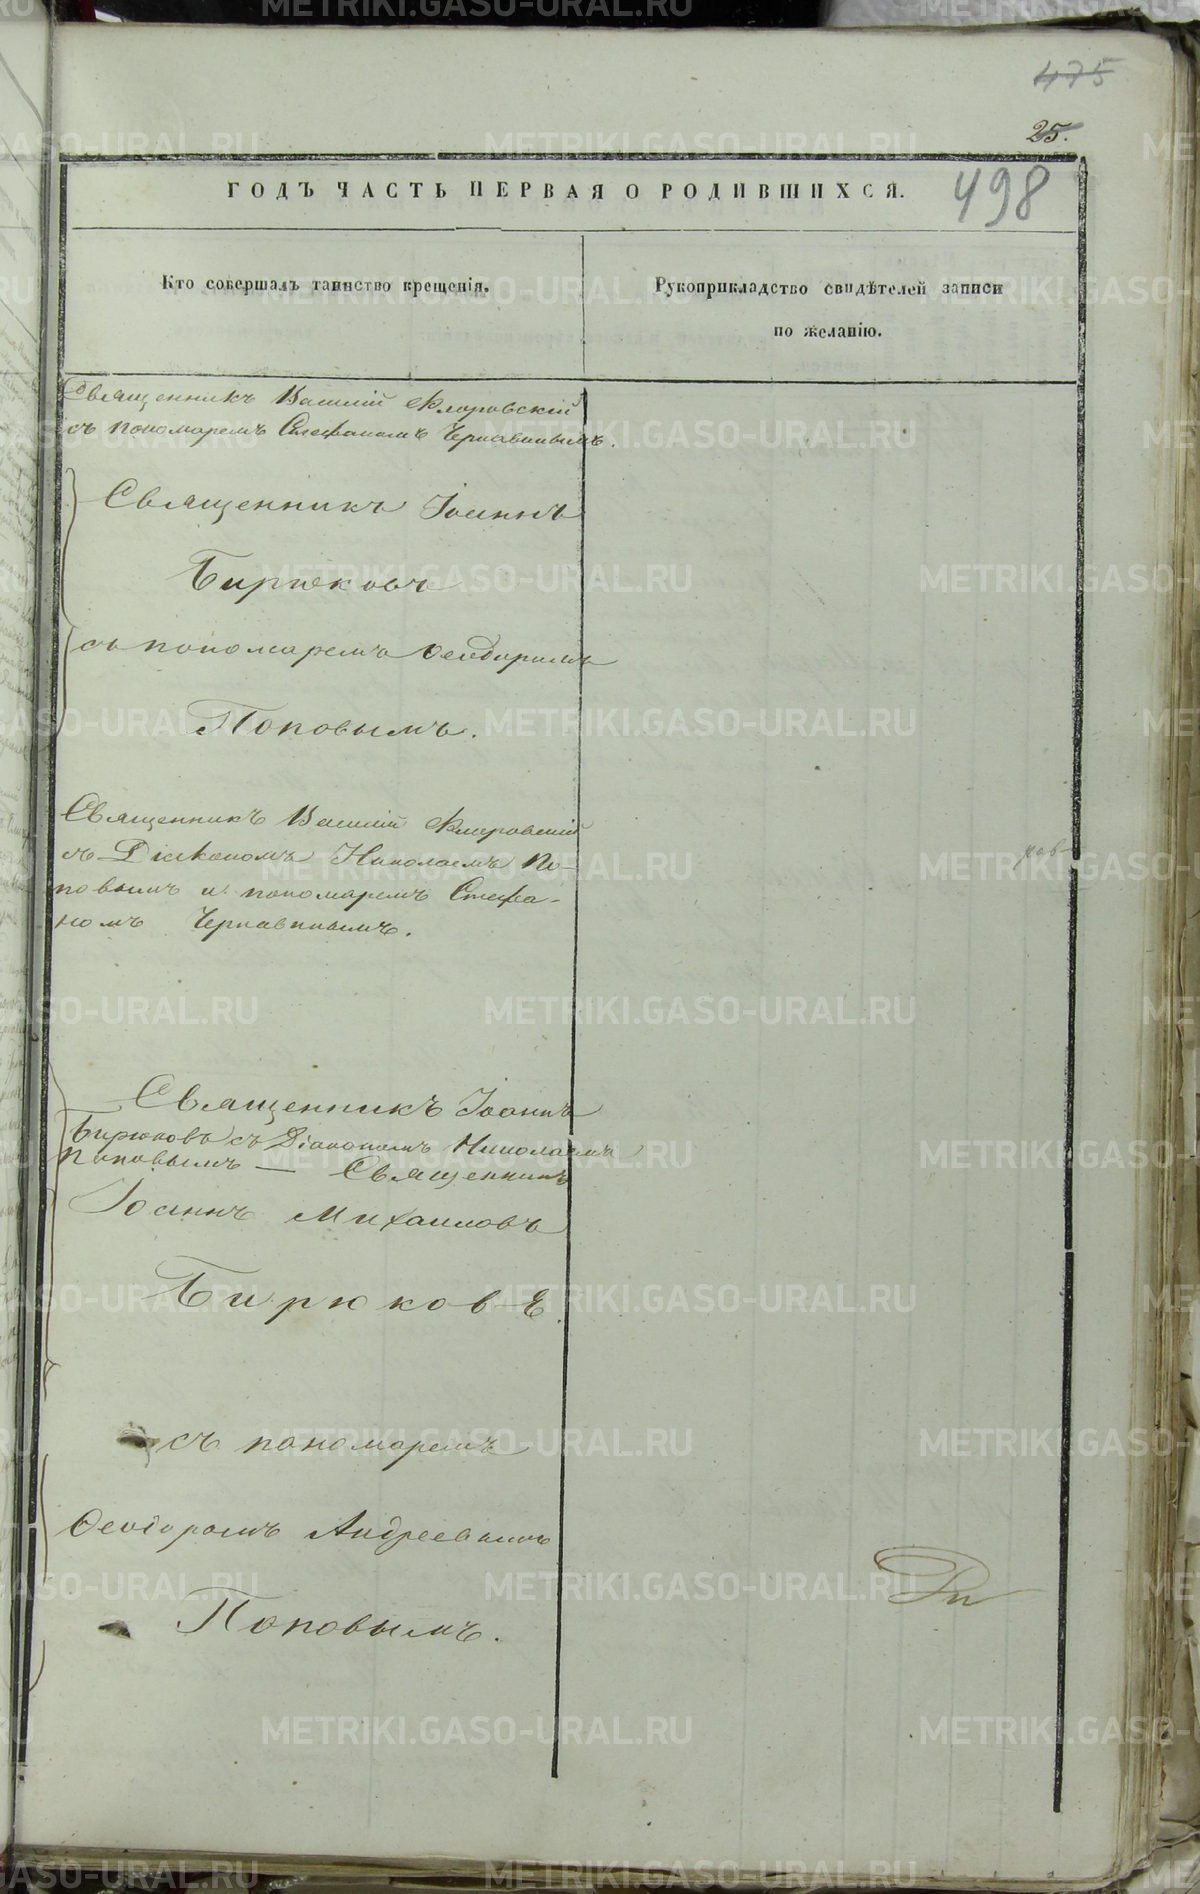 475
25.
ГОДЪ ЧАСТЬ ПЕРВАЯ О РОДИВШИХСЯ.
498
Кто совершалъ таинство крещенія.
Рукоприкладство свидѣтелей записи
по желанію.
Священникъ Василій Флоровскій
съ пономаремъ Стефаномъ Чернавинымъ.
Священникъ Іоаннъ
Бирюковъ
съ пономаремъ Ѳеодоромъ
Поповымъ.
Священникъ Василій Флоровскій
съ Діакономъ Николаемъ По-
повымъ и пономаремъ Стефа-
номъ Чернавинымъ.
Священникъ Іоаннъ
Бирюковъ съ Діакономъ Николаемъ
Поповымъ — Священникъ
Іоаннъ Михаиловъ
Бирюковъ.
съ пономаремъ
Ѳеодоромъ Андреевымъ
Поповымъ.
METRIKI.GASO-URAL.RU